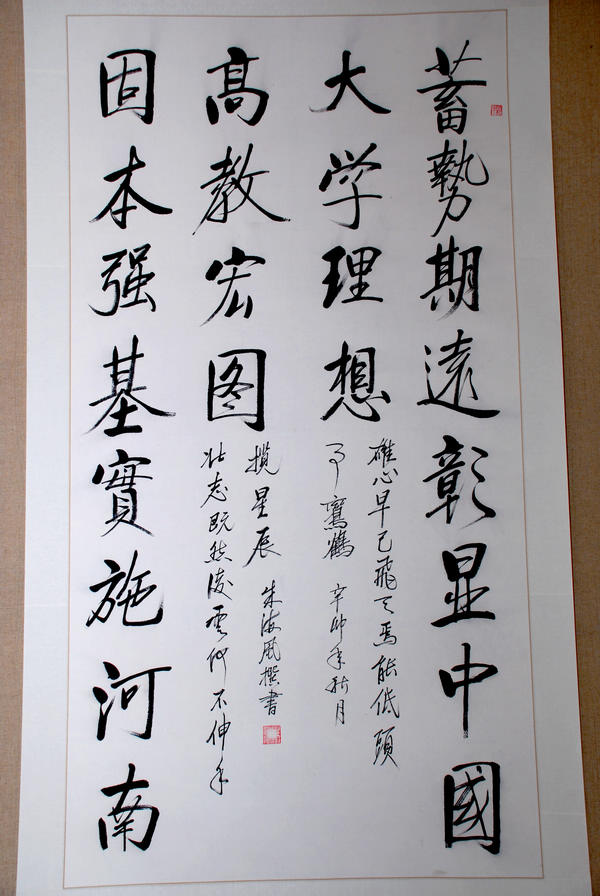 蓄勢期遠彰显中國
大学理想
雄心早已飛天焉能低頭
鸞鶴 辛卯年秋月
固本强基實施河南
高教宏图
壮志既然凌雲何不伸手
揽星辰 朱海風撰書